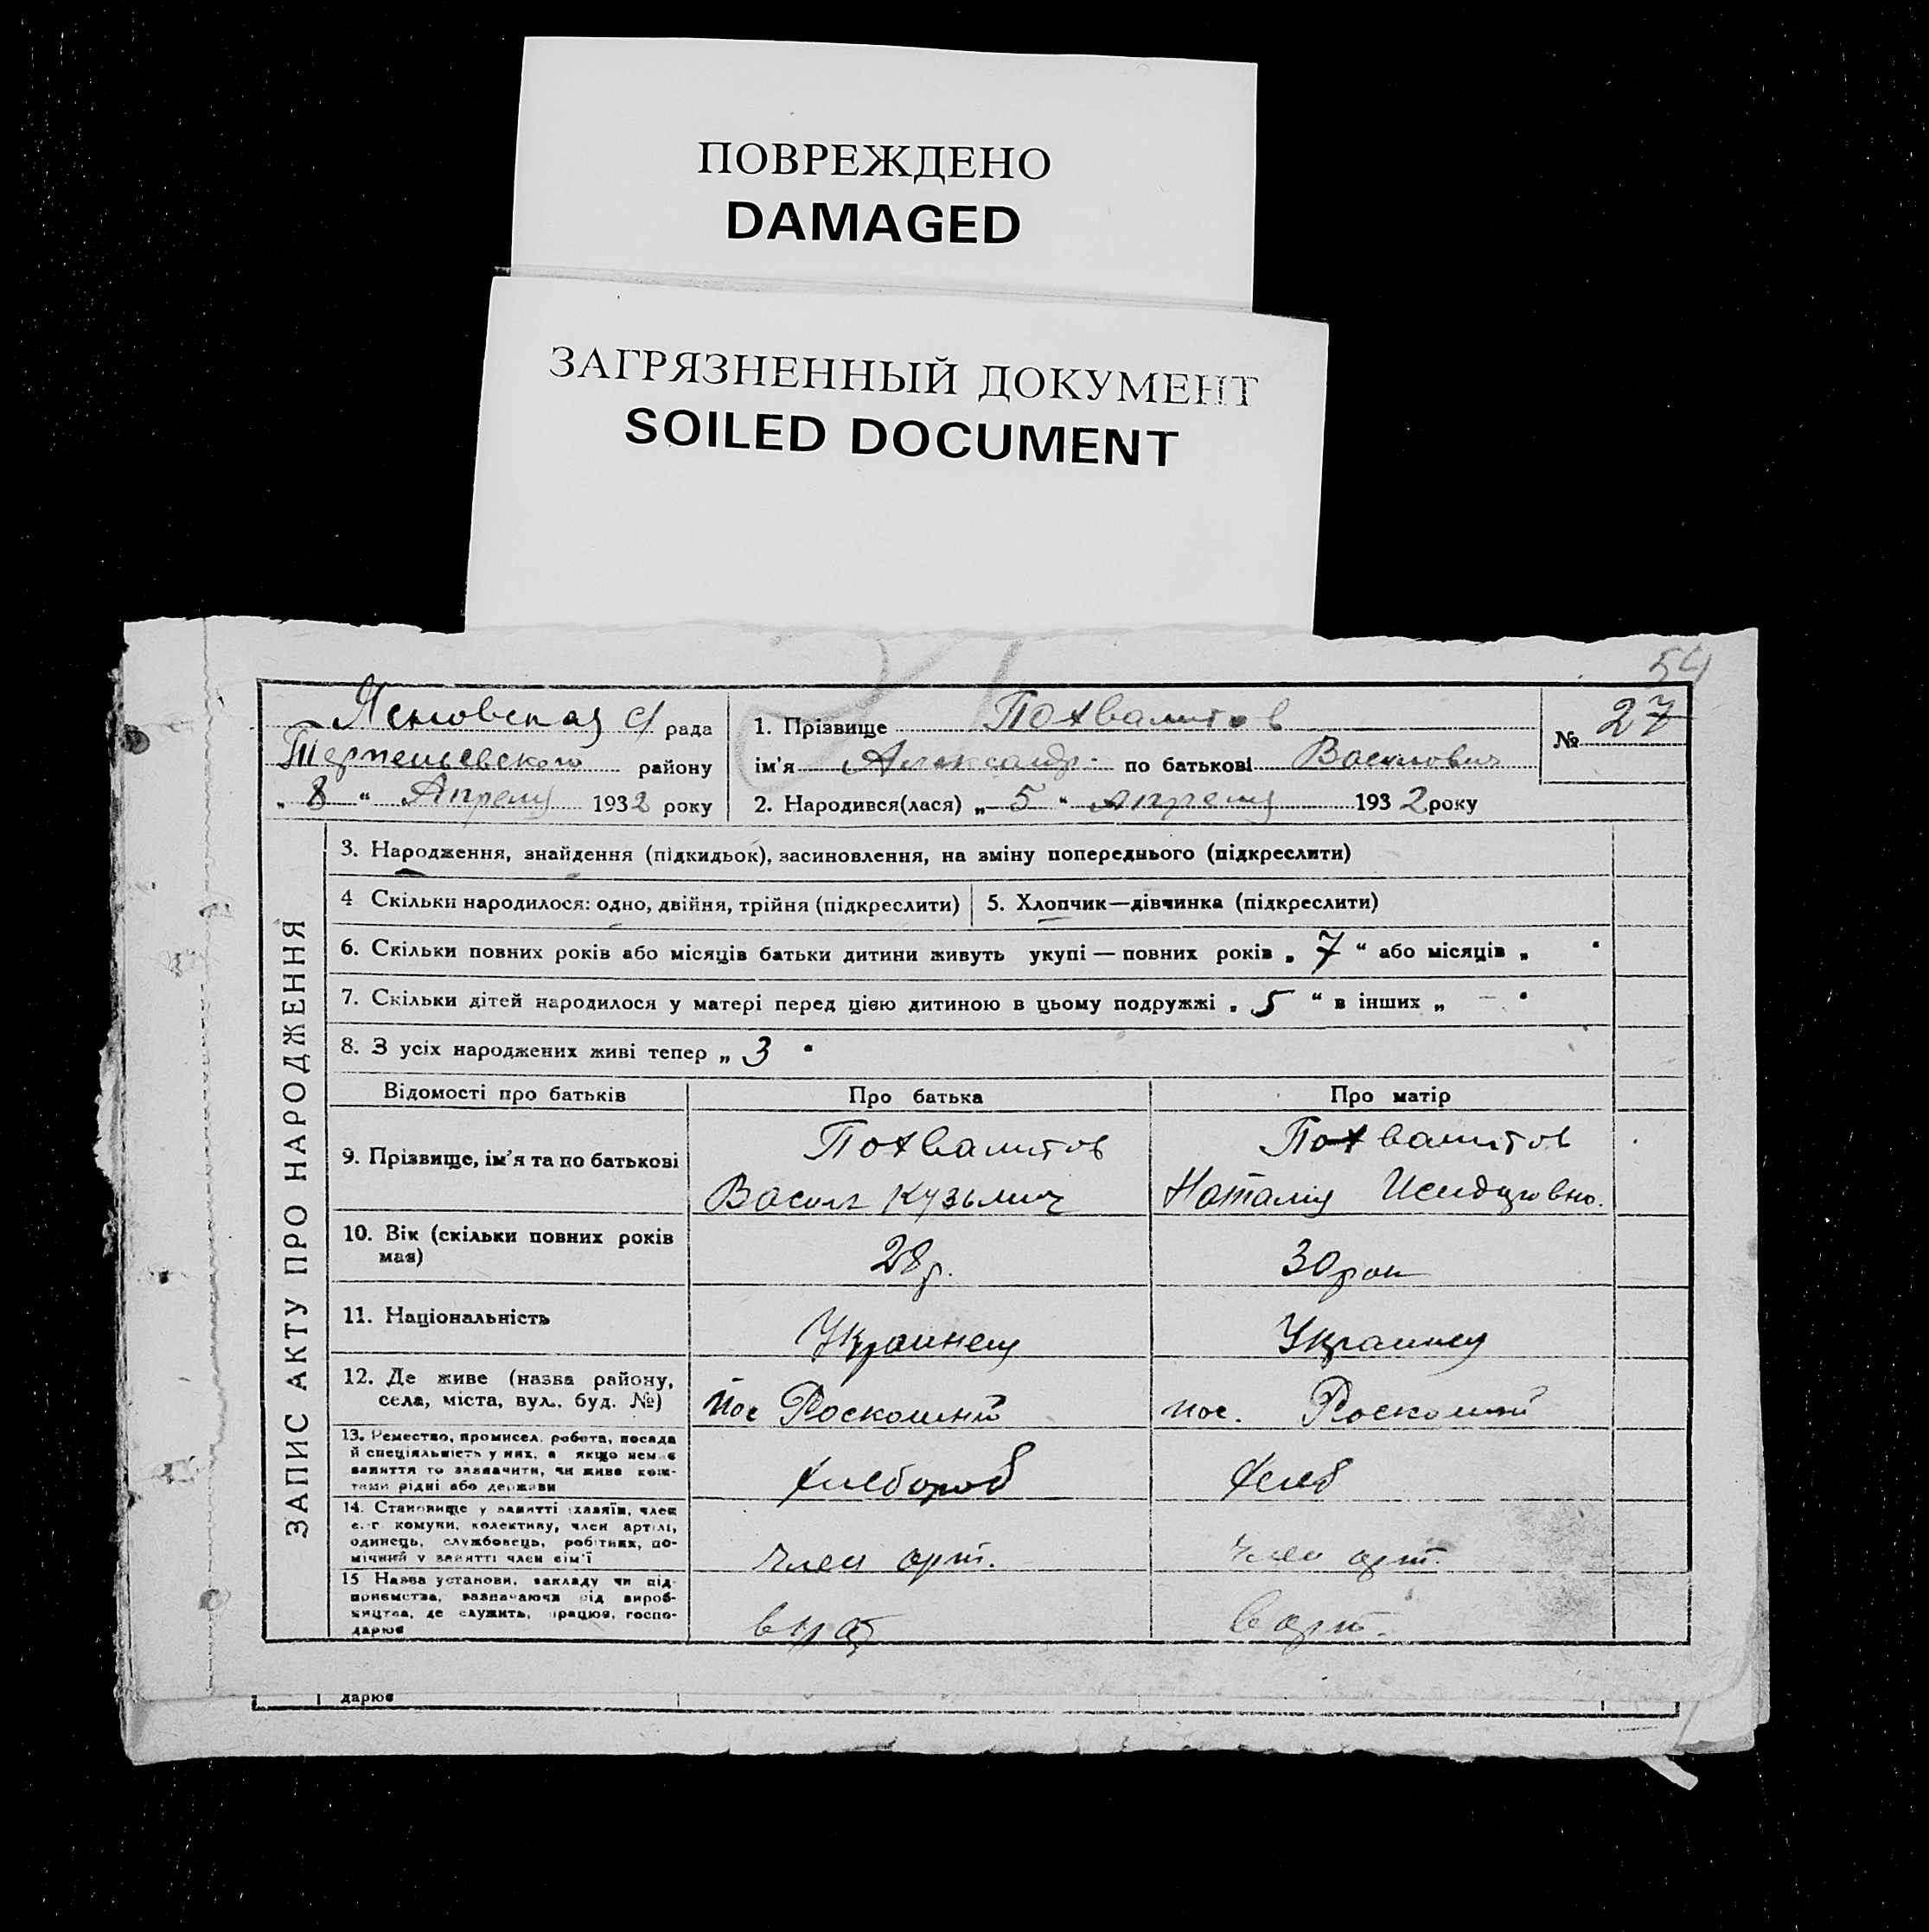 ПОВРЕЖДЕНО
DAMAGED
ЗАГРЯЗНЕННЫЙ ДОКУМЕНТ
SOILED DOCUMENT
54
с/ рада
района
„ 8 “ Апреля 1932 року
1. Прізвище Похвалитов
№ 27
ім'я Александр по батькові Василович
2. Народився(лася) „ 5 “ Апреля 1932 року
ЗАПИС АКТУ ПРО НАРОДЖЕННЯ
3. Народження, знайдення (підкидьок), засиновлення, на зміну попереднього (підкреслити)
4 Скільки народилося: одно, двійня, трійня (підкреслити)
5. Хлопчик—дівчинка (підкреслити)
6. Скільки повних років або місяців батьки дитини живуть укупі — повних років „ 7 “ або місяців „ “
7. Скільки дітей народилося у матері перед цією дитиною в цьому подружжі „ 5 “ в інших „ – “
8. З усіх народжених живі тепер „ 3 “
Відомості про батьків
Про батька
Про матір
9. Прізвище, ім'я та по батькові
Похвалитов
Василь Кузьмич
Похвалитов
Наталія
10. Вік (скільки повних років має)
28 р.
30 рок
11. Національність
Украинец
12. Де живе (назва району,
села, міста, вул., буд. №)
пос Роскошний
пос. Роскошний
13. Ремество, промисел, робота, посада
й спеціяльність у них, а якщо немає
заняття то зазначити, чи живе кош-
тами рідні або держави
хлебороб
хлеб
14. Становище у занятті (хазяїн, член
с.-г комуни, колективу, член артілі,
одинець, службовець, робітник, по-
мічний у занятті член сім'ї
член арт.
член арт.
15 Назва установи, закладу чи під-
приємства, зазначаючи рід вироб-
ництва, де служить, працює, госпо-
дарює
в арт.
дарює